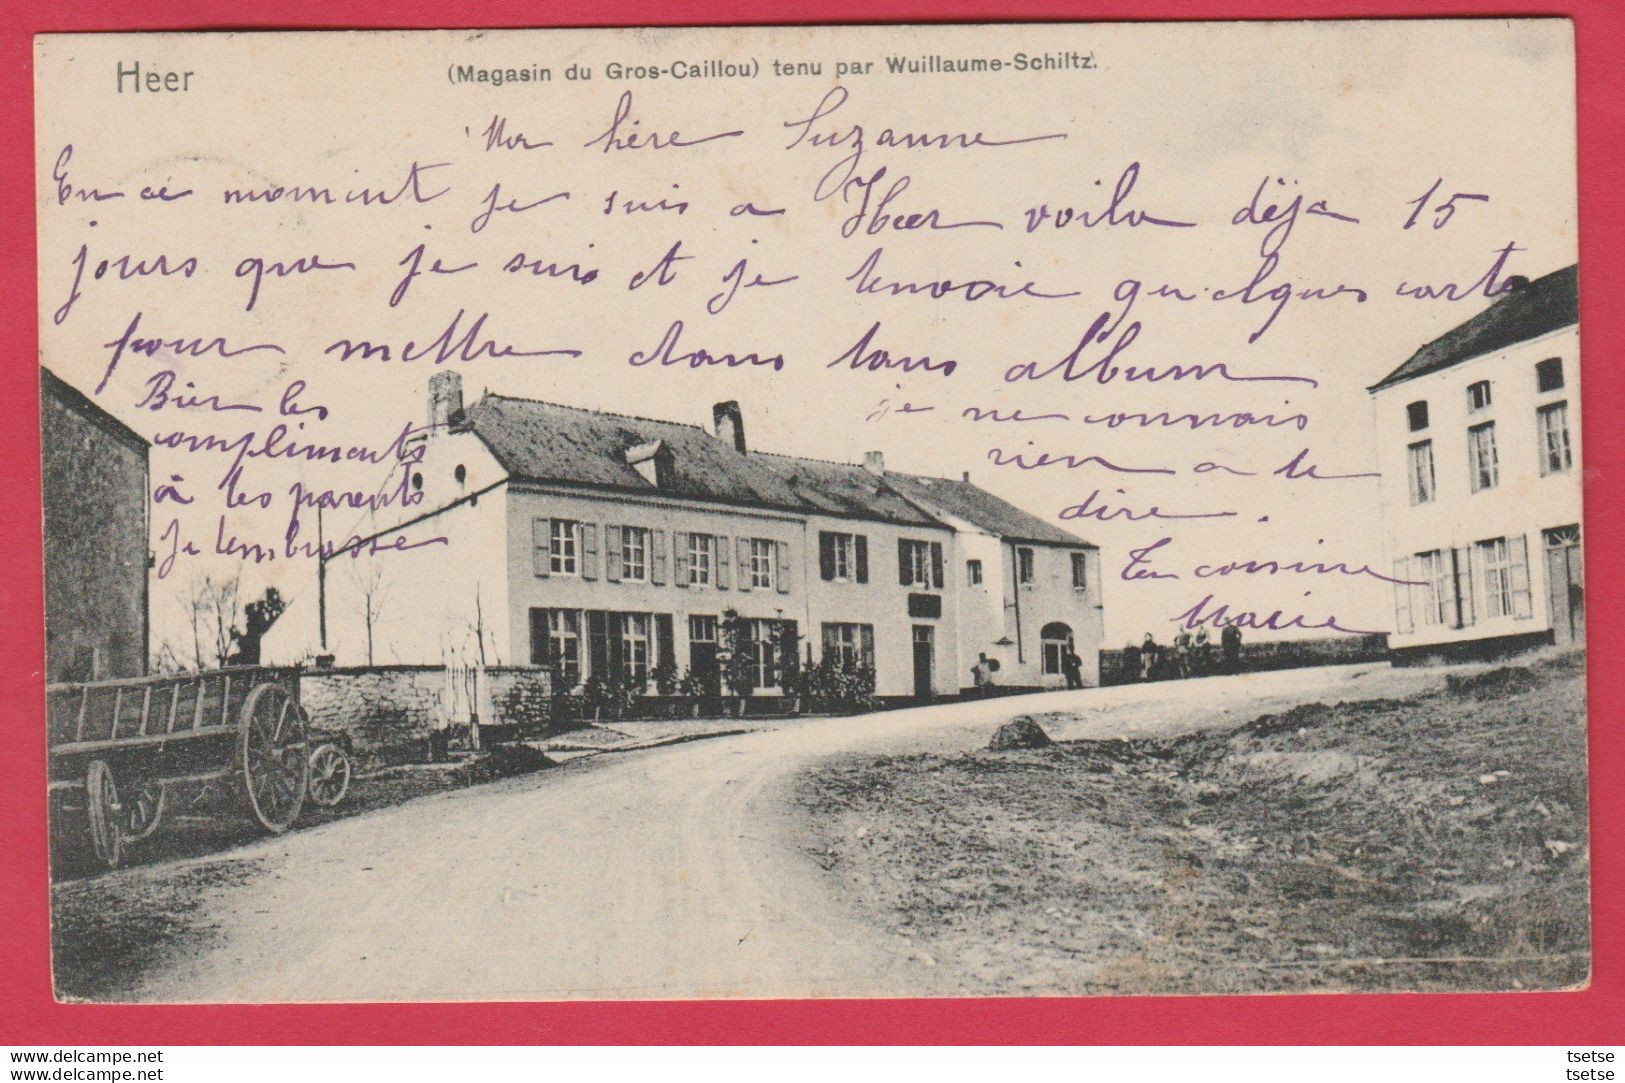 Heer
(Magasin du Gros-Caillou) tenu par Wuillaume-Schiltz.
Ma hère Suzanne
En ce moment je suis a Heer voila déja 15
jours que je suis et je tenvoie quelques carte
pour mettre dans tons album
je ne connais
rien a te
dire.
Ta cousine
Marie
Bien les
compliments
à tes parents
Je tembrasse
www.delcampe.net
www.delcampe.net
tsetse
tsetse